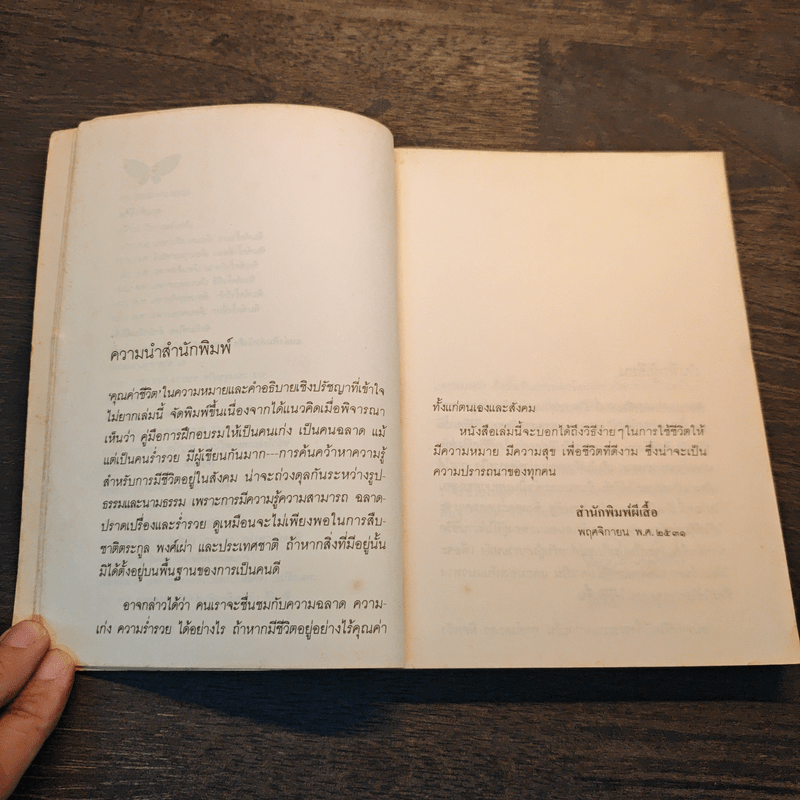 ความนำสำนักพิมพ์
'คุณค่าชีวิต' ในความหมายและคำอธิบายเชิงปรัชญาที่เข้าใจ
ไม่ยากเล่มนี้ จัดพิมพ์ขึ้นเนื่องจากได้แนวคิดเมื่อพิจารณา
เห็นว่า คู่มือการฝึกอบรมให้เป็นคนเก่ง เป็นคนฉลาด แม้
แต่เป็นคนร่ำรวย มีผู้เขียนกันมาก---การค้นคว้าหาความรู้
สำหรับการมีชีวิตอยู่ในสังคม น่าจะถ่วงดุลกันระหว่างรูป-
ธรรมและนามธรรม เพราะการมีความรู้ความสามารถ ฉลาด-
ปราดเปรื่องและร่ำรวย ดูเหมือนจะไม่เพียงพอในการสืบ-
ชาติตระกูล พงศ์เผ่า และประเทศชาติ ถ้าหากสิ่งที่มีอยู่นั้น
มิได้ตั้งอยู่บนพื้นฐานของการเป็นคนดี
อาจกล่าวได้ว่า คนเราจะชื่นชมกับความฉลาด ความ-
เก่ง ความร่ำรวย ได้อย่างไร ถ้าหากมีชีวิตอยู่อย่างไร้คุณค่า
ทั้งแก่ตนเองและสังคม
หนังสือเล่มนี้จะบอกได้ถึงวิธีง่ายๆ ในการใช้ชีวิตให้
มีความหมาย มีความสุข เพื่อชีวิตที่ดีงาม ซึ่งน่าจะเป็น
ความปรารถนาของทุกคน
สำนักพิมพ์ผีเสื้อ
พฤศจิกายน พ.ศ.๒๕๓๑